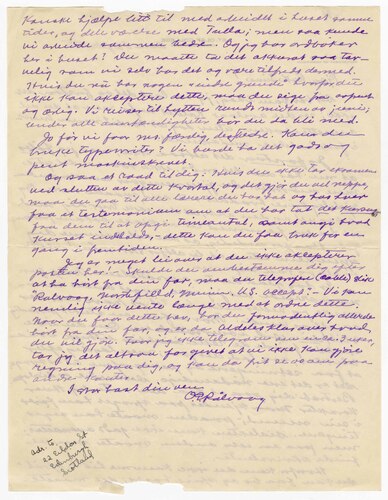 Kanske hjælpe litt til med arbeidet i huset somme
tider, og ville være med Tulla; men saa kunde
vi arbeide sammen bedre. Og jeg har ordbøker
her i huset! Du maatte ta det akkurat saa tar-
velig som vi selv har det og være tilfreds dermed.
Hvis du nu har nogen rimelig grund hvorfor du
ikke kan akceptere dette, maa du sige fra aapent
og ærlig. Vi reiser til hytten rundt midten av juni;
under alle omstændigheter bør du da bli med.
Jo før vi faar net færdig, desto bedre. Kan du
bruke typewriter? Vi burde ha det godt og
pent maskinskrevet.
Og saa et raad til dig: Hvis du ikke tar eksamen
ved slutten av dette kvartal, og det gjør du vel neppe,
maa du gaa til alle lærere du har hat og faa hver
faa et testemonium om at du har tat det kursus
fra dem til at opgi timeantal, samt angi hvad
kurset indeholdt; dette kan du faa bruk for en
gang i fremtiden.
Jeg er meget ivrig over at du ikke akcepterer
posten her! — Skulde du ombestemme dig efter
at ha hørt fra din far, maa du telegrafere (cable) Dix
Rølvaag, Northfield, Minn. U.S. accept! — Vi kan
nemlig ikke vente længe med at ordne dette
Naar du faar dette brev, har du formodentlig allerede
hørt fra din far, og er da aldeles klar over hvad
du vil gjøre. Faar jeg ikke telegram om en to uker,
tar jeg det altsaa for givet at vi ikke kan gjøre
regning paa dig, og kan da se os om paa
andre kanter.
I stor hast din ven
O.E. Rølvaag
adr. to
22 Eildon St
Edinburgh
Scotland